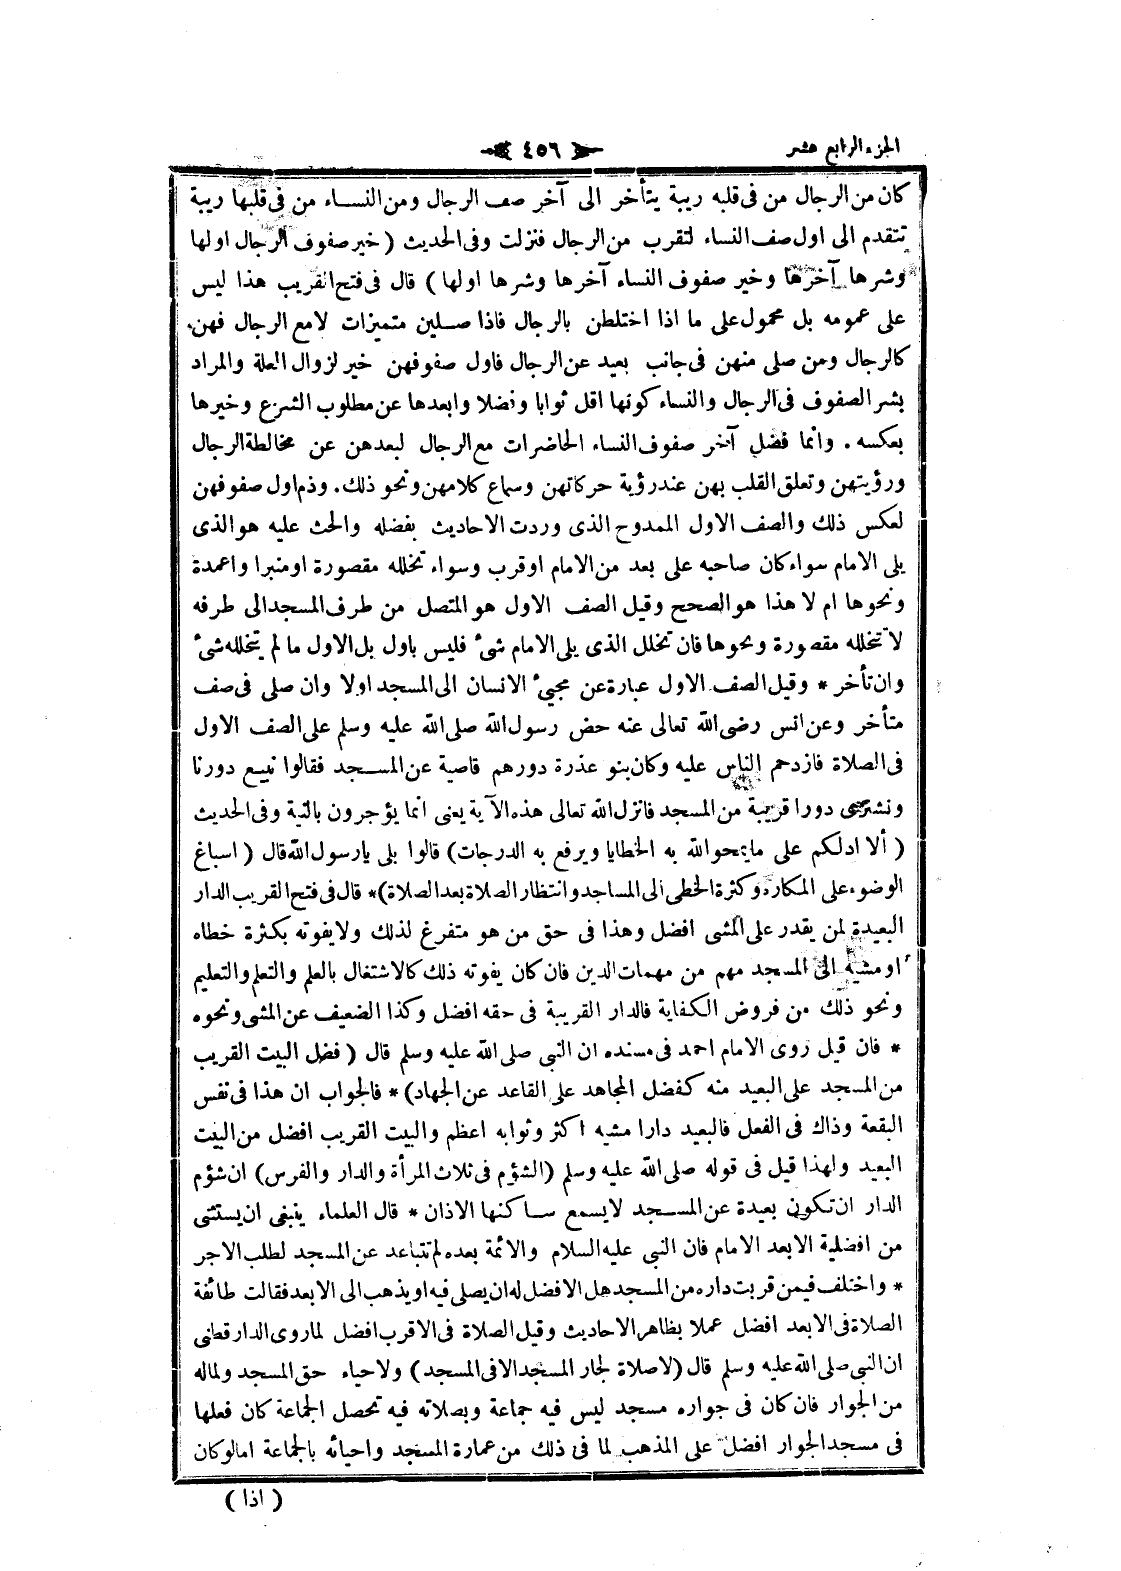 الجزء الرابع عشر
٤٥٦
كان من الرجال من فى قلبه ريبة يتأخر الى آخر صف الرجال ومن النساء من فى قلبها ريبة
تتقدم الى اول صف النساء لتقرب من الرجال فنزلت وفى الحديث ( خير صفوف الرجال اولها
وشرها آخرها وخير صفوف النساء آخرها وشرها اولها ) قال فى فتح القريب هذا ليس
على عمومه بل محمول على ما اذا اختلطن بالرجال فاذا صلين متميزات لامع الرجال فهن
كالرجال ومن صلى منهن فى جانب بعيد عن الرجال فاول صفوفهن خير لزوال العلة والمراد
بشر الصفوف فى الرجال والنساء كونها اقل ثوابا وفضلا وابعدها عن مطلوب الشرع وخيرها
بعكسه . وانما فضل آخر صفوف النساء الحاضرات مع الرجال لبعدهن عن مخالطة الرجال
ورؤيتهن وتعلق القلب بهن عند رؤية حركاتهن وسماع كلامهن ونحو ذلك . وذم اول صفوفهن
لعكس ذلك والصف الاول الممدوح الذى وردت الاحاديث بفضله والحث عليه هو الذى
يلى الامام سواء كان صاحبه على بعد من الامام او قرب وسواء تخلله مقصورة او منبرا واعمدة
ونحوها ام لا هذا هو الصحح وقيل الصف الاول هو المتصل من طرف المسجد الى طرفه
لا تتخلله مقصورة ونحوها فان تخلل الذى يلى الامام شئ فليس باول بل الاول ما لم يتخلله شئ
وان تأخر * وقيل الصف الاول عبارة عن مجيئ الانسان الى المسجد اولا وان صلى فى صف
متأخر وعن انس رضى الله تعالى عنه حض رسول الله صلى الله عليه وسلم على الصف الاول
فى الصلاة فازدحم الناس عليه وكان بنو عذرة دورهم قاصية عن المسجد فقالوا نبيع دورنا
ونشترى دورا قريبة من المسجد فانزل الله تعالى هذه الآية يعنى انما يؤجرون بالنية وفى الحديث
( ألا ادلكم على ما يمحو الله به الخطايا ويرفع به الدرجات ) قالوا بلى يارسول الله قال ( اسباغ
الوضوء على المكاره وكثرة الخطى الى المساجد وانتظار الصلاة بعد الصلاة )* قال فى فتح القريب الدار
البعيدة لمن يقدر على المشى افضل وهذا فى حق من هو متفرغ لذلك ولايفوته بكثرة خطاه
او مشيه الى المسجد مهم من مهمات الدين فان كان يفوته ذلك كالاشتغال بالعلم والتعلم والتعليم
ونحو ذلك من فروض الكفاية فالدار القريبة فى حقه افضل وكذا الضعيف عن المشى ونحوه
* فان قيل روى الامام احمد فى مسنده ان النبى صلى الله عليه وسلم قال ( فضل البيت القريب
من المسجد على البعيد منه كفضل المجاهد على القاعد عن الجهاد )* فالجواب ان هذا فى نفس
البقعة وذاك فى الفعل فالبعيد دارا مشيه اكثر وثوابه اعظم والبيت القريب افضل من البيت
البعيد ولهذا قيل فى قوله صلى الله عليه وسلم ( الشؤم فى ثلاث المرأة والدار والفرس ) ان شؤم
الدار ان تكون بعيدة عن المسجد لايسمع ساكنها الاذان * قال العلماء ينبغى ان يستثنى
من افضلية الابعد الامام فان النبى عليه السلام والائمة بعده لم تتباعد عن المسجد لطلب الاجر
* واختلف فيمن قربت داره من المسجد هل الافضل له ان يصلى فيه او يذهب الى الابعد فقالت طائفة
الصلاة فى الابعد افضل عملا بظاهر الاحاديث وقيل الصلاة فى الاقرب افضل لما روى الدار قطنى
ان النبى صلى الله عليه وسلم قال ( لاصلاة لجار المسجد الا فى المسجد ) ولاحياء حق المسجد ولماله
من الجوار فان كان فى جواره مسجد ليس فيه جماعة وبصلاته فيه تحصل الجماعة كان فعلها
فى مسجد الجوار افضل على المذهب لما فى ذلك من عمارة المسجد واحيائه بالجماعة امالو كان
( اذا )